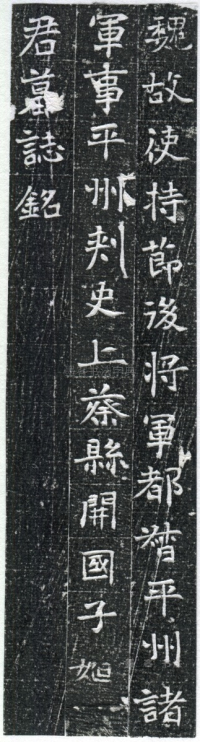 魏故使持節後将軍都督平州諸
軍事平州刾史上蔡縣開國子
君墓誌銘